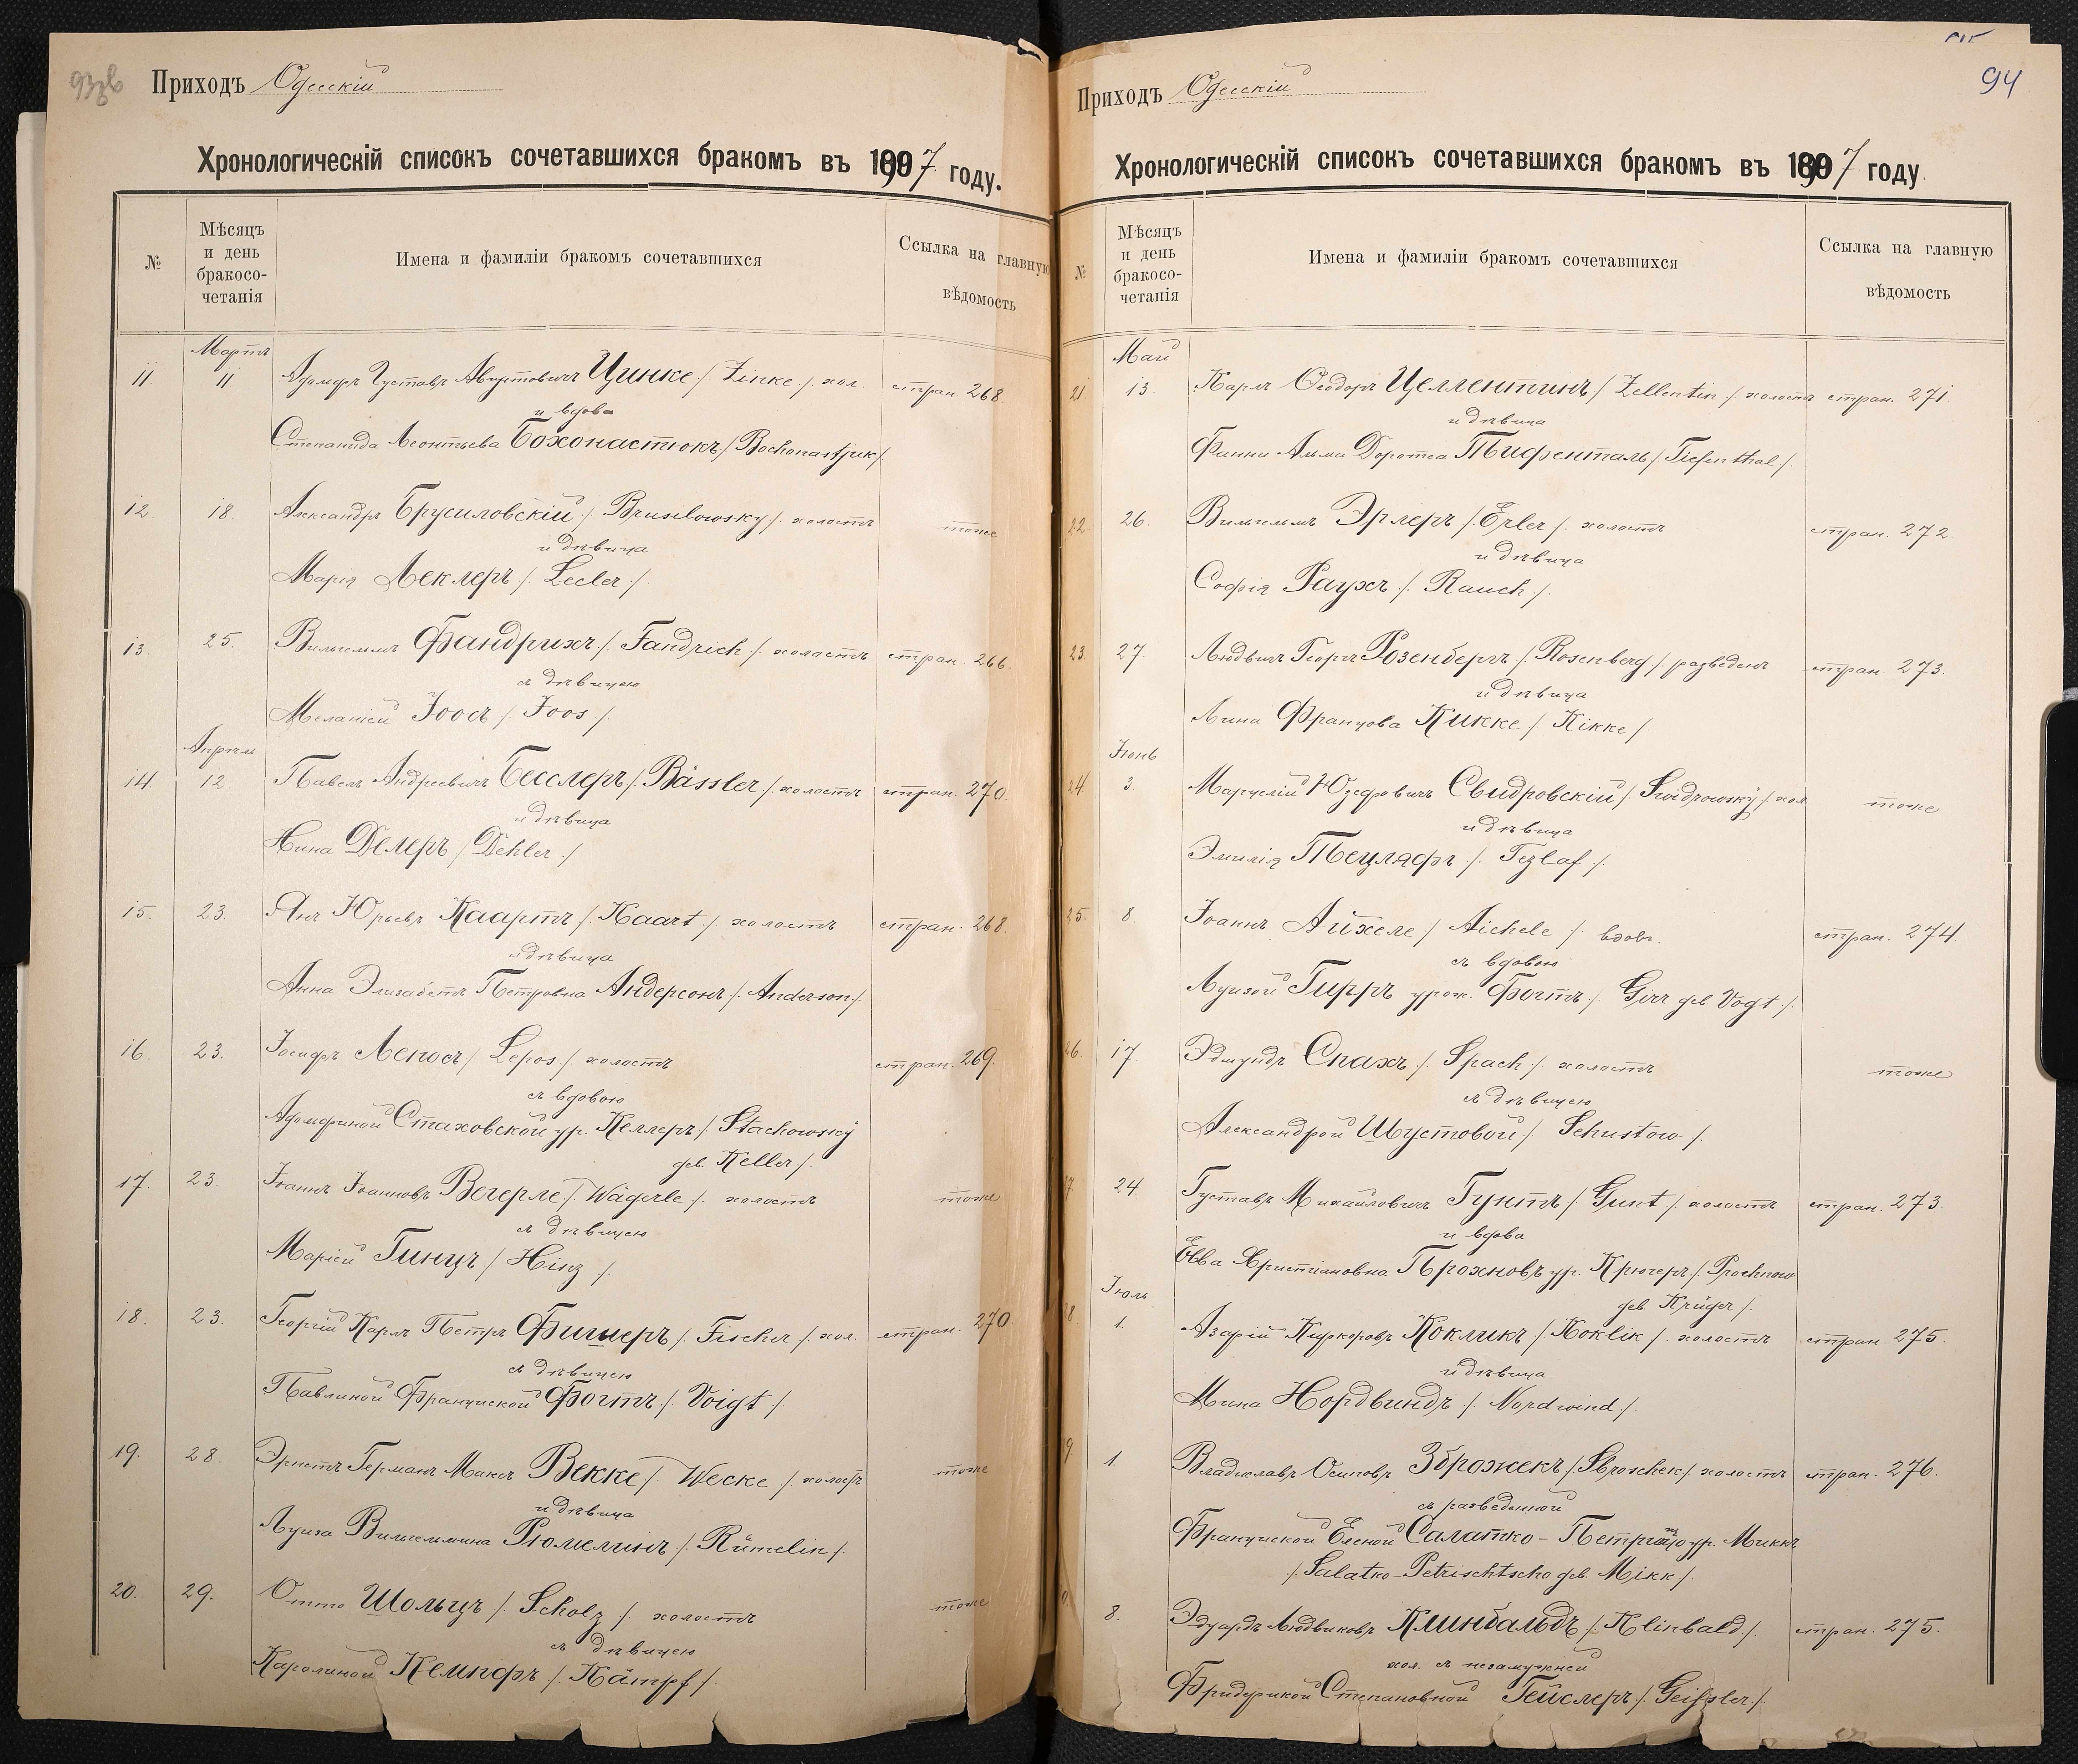 Приходъ Одесскій
Хронологическій списокъ сочетавшихся бракомъ въ 1897 году.
№
Мѣсяцъ
и день
бракосо-
четанія
Имена и фамиліи бракомъ сочетавшихся
Ссылка на главную
вѣдомость
Мартъ
11. 11 Адольфъ Густавъ Августовичъ Цинке /. Zinke ./. хол. стран 268
и вдова
Степанида Леонтьева Бохонастюкъ /. Bochonastjuk/
12. 18. Александръ Брусиловскій /. Brusilowsky /. холостъ тоже
и дѣвица
Марія Леклеръ /. Lecler ./.
13 25. Вильгельмъ Фандрихъ /. Fandrich /. холостъ стран. 266.
съ дѣвицею
Меланіей Іоосъ /. Joos /.
Апрѣль
14. 12 Павелъ Андреевичъ Бесслеръ /. Bässler /. холостъ стран. 270.
и дѣвица
Нина Делеръ /. Dehler /.
15. 23. Янъ Юрьевъ Каартъ /. Kaart /. холостъ стран. 268
и дѣвица
Анна Элизабетъ Петровна Андерсонъ /. Anderson /.
16 23. Іосифъ Лепосъ /. Lepos /. холостъ стран. 269.
съ вдовою
Адольфиной Стаховской ур. Келлеръ /. Stachowsky
geb. Keller /.
17. 23. Іоаннъ Іоанновъ Вегерле /. Wägerle /. холостъ тоже
съ дѣвицею
Маріей Гинцъ /. Hinz /.
18. 23. Георгій Карлъ Петръ Фишеръ /. Fischer /. хол. стран. 270
съ дѣвицею
Павлиной Француской Фогтъ /. Voigt /.
19. 28. Эрнстъ Германъ Максъ Векке /. Wecke /. холостъ тоже
и дѣвица
Луиза Вильгельмина Рюмелинъ /. Rümelin /.
20. 29. Отто Шольцъ /. Scholz /. холостъ тоже
съ дѣвицею
Каролиной Кемпфъ /. Kämpf /.
94
Приходъ Одесскій
Хронологическій списокъ сочетавшихся бракомъ въ 1897 году.
№
Мѣсяцъ
и день
бракосо-
четанія
Имена и фамиліи бракомъ сочетавшихся
Ссылка на главную
вѣдомость
Май
21 13. Карлъ Ѳеодоръ Целлентинъ /. Zellentin /. холостъ стран. 271.
и дѣвица
Фанни Альма Доротеа Тифенталь /. Tiefenthal /.
22. 26. Вильгельмъ Эрлеръ /. Erler /. холостъ стран. 272.
и дѣвица
Софія Раухъ /. Rauch /.
23. 27. Людвигъ Георгъ Розенбергъ /. Rosenberg /. разведенъ стран. 273.
и дѣвица
Лина Францова Кикке /. Kikke /.
Іюнь
24 3. Марцелій Юзефовичъ Свидровскій /. Swidrowsky /. хол. тоже
и дѣвица
Эмилія Тецлафъ /. Tezlaf /.
25. 8. Іоаннъ Айхеле /. Aichele /. вдовъ. стран. 274.
съ вдовою
Луизой Гирръ урож. Фогтъ /. Girr geb. Vogt /.
26. 17. Эдмундъ Спахъ /. Spach /. холостъ тоже
съ дѣвицею
Александрой Шустовой /. Schustow /.
7. 24. Густавъ Михайловичъ Гунтъ /. Gunt /. холостъ стран. 273.
и вдова
Евва Христіановна Прохновъ ур. Крюгеръ /. Prochnow
geb. Krüger /.
Іюль
8 1. Азарій Киркоровъ Кокликъ /. Koklik /. холостъ стран. 275.
и дѣвица
Мина Нордвиндъ /. Nordwind /.
9. 1. Владиславъ Осиповъ Зброжекъ /. Sbroschek /. холостъ стран. 276.
съ разведенной
Француской Еленой Салатко-Петрищо ур. Миккъ
/. Salatko-Petrischtscho geb. Mikk /.
0 8. Эдуардъ Людвиковъ Клинбальдъ /. Klinbald /. стран. 275.
хол. съ незамужней
Фридерикой Степановной Гейслеръ /. Geissler /.